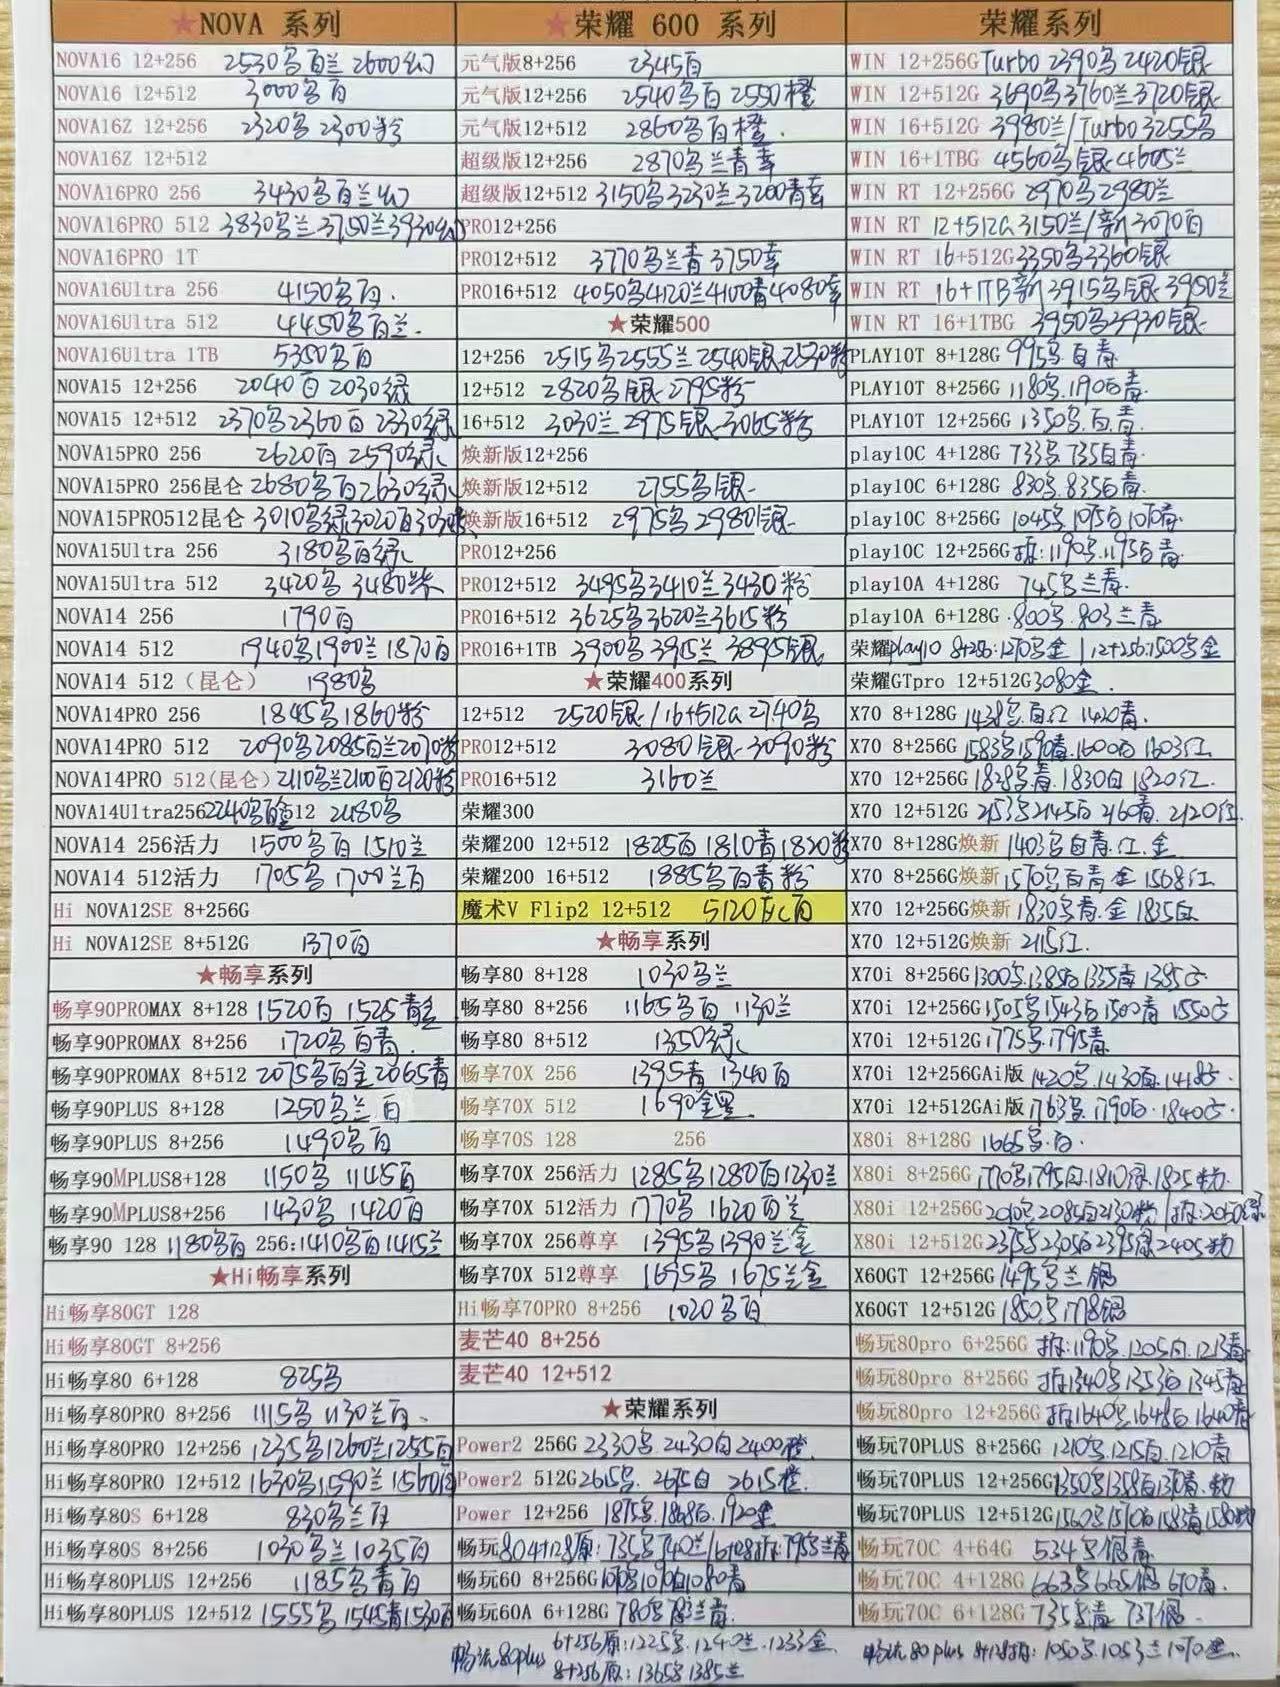 ★NOVA 系列
NOVA16 12+256 2530乌百兰 2600幻
NOVA16 12+512 3000乌百
NOVA16Z 12+256 2320乌 2300粉
NOVA16Z 12+512
NOVA16PRO 256 3430乌百兰幻
NOVA16PRO 512 3830乌兰 3750兰 3930幻
NOVA16PRO 1T
NOVA16Ultra 256 4150乌百.
NOVA16Ultra 512 4450乌百兰.
NOVA16Ultra 1TB 5350乌百
NOVA15 12+256 2040百 2030绿
NOVA15 12+512 2370乌2360百 2330绿
NOVA15PRO 256 2620百 2590绿
NOVA15PRO 256昆仑 2680乌百2630绿
NOVA15PRO512昆仑 3010乌绿3020百
NOVA15Ultra 256 3180乌百绿
NOVA15Ultra 512 3420乌 3480紫
NOVA14 256 1790百
NOVA14 512 1940乌1900兰1870百
NOVA14 512（昆仑） 1980乌
NOVA14PRO 256 1845乌1860粉
NOVA14PRO 512 2090乌2085百兰2070粉
NOVA14PRO 512(昆仑) 2110乌兰2100百2120粉
NOVA14Ultra256 2240乌百金12 2480乌
NOVA14 256活力 1500乌百 1510兰
NOVA14 512活力 1705乌 1700兰百
Hi NOVA12SE 8+256G
Hi NOVA12SE 8+512G 1370百
★畅享系列
畅享90PROMAX 8+128 1520百 1525青金
畅享90PROMAX 8+256 1720乌百青.
畅享90PROMAX 8+512 2075乌百金2065青
畅享90PLUS 8+128 1250乌兰百
畅享90PLUS 8+256 1490乌百
畅享90MPLUS8+128 1150乌 1145百
畅享90MPLUS8+256 1430乌 1420百
畅享90 128 1180乌百 256:1410乌百1415兰
★Hi畅享系列
Hi畅享80GT 128
Hi畅享80GT 8+256
Hi畅享80 6+128 825乌
Hi畅享80PRO 8+256 1115乌 1130兰百.
Hi畅享80PRO 12+256 1235乌1260兰1255百
Hi畅享80PRO 12+512 1630乌1590兰1560百
Hi畅享80S 6+128 830乌兰百
Hi畅享80S 8+256 1030乌兰1035百
Hi畅享80PLUS 12+256 1185乌青百
Hi畅享80PLUS 12+512 1555乌 1545青1530百
★荣耀 600 系列
元气版8+256 2345百
元气版12+256 2540乌百 2550橙
元气版12+512 2860乌百橙.
超级版12+256 2870乌兰青幸
超级版12+512 3150乌3230兰3200青幸
PRO12+256
PRO12+512 3770乌兰青 3750幸
PRO16+512 4050乌4120兰4100青4080幸
★荣耀500
12+256 2515乌2555兰 2540银2530粉
12+512 2820乌银 2795粉
16+512 3030兰 2975银 3065粉
焕新版12+256
焕新版12+512 2755乌银
焕新版16+512 2975乌 2980银
PRO12+256
PRO12+512 3495乌3410兰3430粉
PRO16+512 3625乌3620兰3615粉
PRO16+1TB 3900乌3915兰 3895银
★荣耀400系列
12+512 2520银/16+512G 2740乌
PRO12+512 3080银 3090粉
PRO16+512 3160兰
荣耀300
荣耀200 12+512 1825百 1810青1820粉
荣耀200 16+512 1885乌百青粉
魔术V Flip2 12+512 5120灰百
★畅享系列
畅享80 8+128 1030乌兰
畅享80 8+256 1165乌百 1130兰
畅享80 8+512 1350绿
畅享70X 256 1395青 1340百
畅享70X 512 1690金黑
畅享70S 128 256
畅享70X 256活力 1285乌1280百1230兰
畅享70X 512活力 1770乌 1620百兰
畅享70X 256尊享 1395乌1390兰金
畅享70X 512尊享 1695乌 1675兰金
Hi畅享70PRO 8+256 1020乌百
麦芒40 8+256
麦芒40 12+512
★荣耀系列
Power2 256G 2330乌 2430白2400橙.
Power2 512G 2615乌. 2675白 2615橙.
Power 12+256 1875乌.1868百.1920金
畅玩80 4+128原: 735乌740兰/6+128拆:795乌兰青
畅玩60 8+256G 1010乌1070白1080青
畅玩60A 6+128G 780乌 兰青.
荣耀系列
WIN 12+256G Turbo 2390乌 2420银
WIN 12+512G 3690乌3760兰3720银
WIN 16+512G 3980兰/Turbo3255乌
WIN 16+1TBG 4560乌银 4605兰
WIN RT 12+256G 2970乌2980兰
WIN RT 12+512G 3150兰/新3070百
WIN RT 16+512G 3350乌3360银
WIN RT 16+1TB新3915乌银 3950兰
WIN RT 16+1TBG 3950乌3930银
PLAY10T 8+128G 995乌 白青
PLAY10T 8+256G 1180乌.1190白青.
PLAY10T 12+256G 1350乌.百.青.
play10C 4+128G 733乌 735白青
play10C 6+128G 830乌.835白青.
play10C 8+256G 1045乌 1075白 1070青.
play10C 12+256G 拆:1190乌.1195白青.
play10A 4+128G 745乌兰青.
play10A 6+128G 800乌.803兰青
荣耀play10 8+256:1270乌金 | 12+256:1500乌金
荣耀GTpro 12+512G 3080金.
X70 8+128G 1438乌.白红 1420青.
X70 8+256G 1583乌1590青.1600白 1603红.
X70 12+256G 1828乌青.1830白 1820红.
X70 12+512G 2153乌2145白 2160青.2120红.
X70 8+128G焕新 1403乌白青.红.金
X70 8+256G焕新 1570乌百青 金 1568红
X70 12+256G焕新 1830乌青.金 1835白
X70 12+512G焕新 2115红.
X70i 8+256G 1300乌.1385白1335青 1385
X70i 12+256G 1505乌1543白1500青 1550
X70i 12+512G 1775乌.1795青
X70i 12+256GAi版 1420乌.1430百.1418
X70i 12+512GAi版 1763乌.1790白.1840
X80i 8+128G 1665乌.白.
X80i 8+256G 1770乌1795白.1810绿.1825粉.
X80i 12+256G 2010乌 2085白2130粉/拆:2050绿
X80i 12+512G 2375乌 2305白2395绿2405粉
X60GT 12+256G 1495乌兰 银
X60GT 12+512G 1850乌.1778银
畅玩80pro 6+256G 拆:1190乌.1205白.1213青
畅玩80pro 8+256G 拆1340乌1353白1345青
畅玩80pro 12+256G 拆1640乌1648白1640青
畅玩70PLUS 8+256G 1210乌.1215白.1210青
畅玩70PLUS 12+256G 1350乌1358白1370青.粉
畅玩70PLUS 12+512G 1560乌1570白1583青1580粉
畅玩70C 4+64G 534乌银青
畅玩70C 4+128G 663乌665银 670青.
畅玩70C 6+128G 735乌青 737银.
畅玩80plus 6+256原:1225乌.1240兰.1233金
8+256原:1365乌1385兰
畅玩80plus 8+128拆:1050乌.1053兰1070金